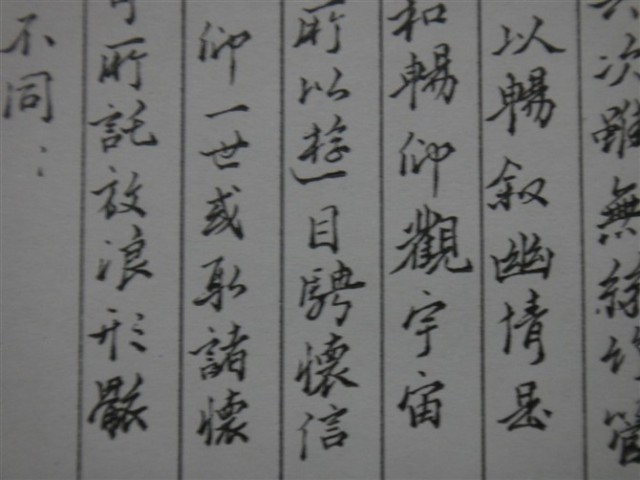 次雖無絲竹管
以暢叙幽情是
和暢仰觀宇宙
所以遊目騁懷信
仰一世或取諸懷
所託放浪形骸
不同：